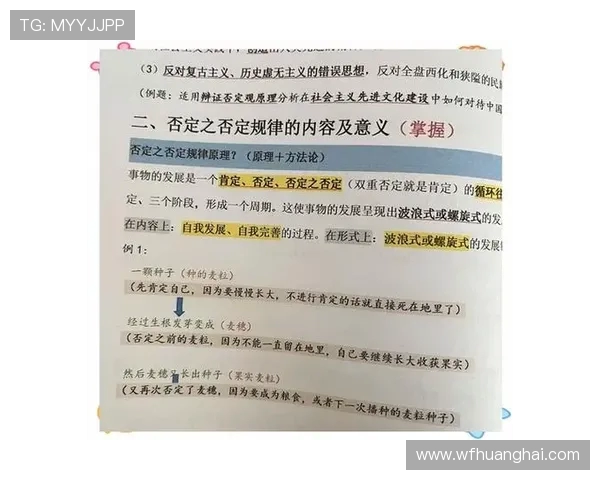 TG: MYYJJPP
（3）反对复古主义、历史虚无主义的错误思想，反对全盘西化和狭隘的民
（例题：适用辩证否定观原理分析在社会主义先进文化建设中如何对待中国
二、否定之否定规律的内容及意义（掌握）
否定之否定规律原理？（原理＋方法论）
事物的发展是一个肯定、否定、否定之否定（双重否定就是肯定）的循环往
定、三个阶段，形成一个周期。这使事物的发展呈现出波浪式或螺旋式的发
在内容上：自我发展、自我完善的过程。在形式上：波浪式或螺旋式的发展
例 1：
一颗种子（种的麦粒）
（先肯定自己，因为要慢慢长大，不进行肯定的话就直接死在地里了）
经过生根发芽变成（麦穗）
（否定之前的麦粒，因为不能一直留在地里，自己要继续长大收获果实）
然后麦穗又长出种子（果实麦粒）
（又再次否定了麦穗，因为要成为粮食，或者下一次播种的麦粒种子）
www.wfhuanghai.com